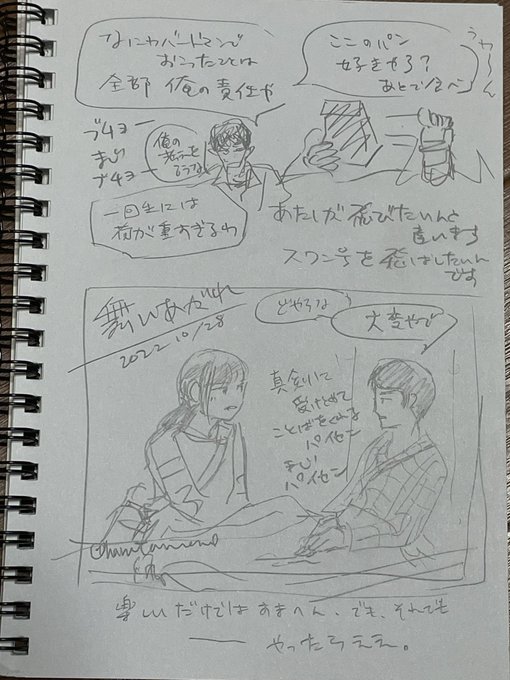 なにわバードマンで
おこったことは
全部 俺の責任や
ここのパン
好きやろ?
あとで食べ
うわーん
ブチョー
まじ
ブチョー
俺の
一回生には
荷が重すぎるわ
あたしが飛びたいんと
違います
スワン号を飛ばしたいん
です
舞いあがれ
2022 10/28
どやろな
大変やで
真剣に
受けとめて
ことばをくれる
パイセン
まじ
パイセン
楽しいだけではあまへん、でも、それでも
やったらええ。